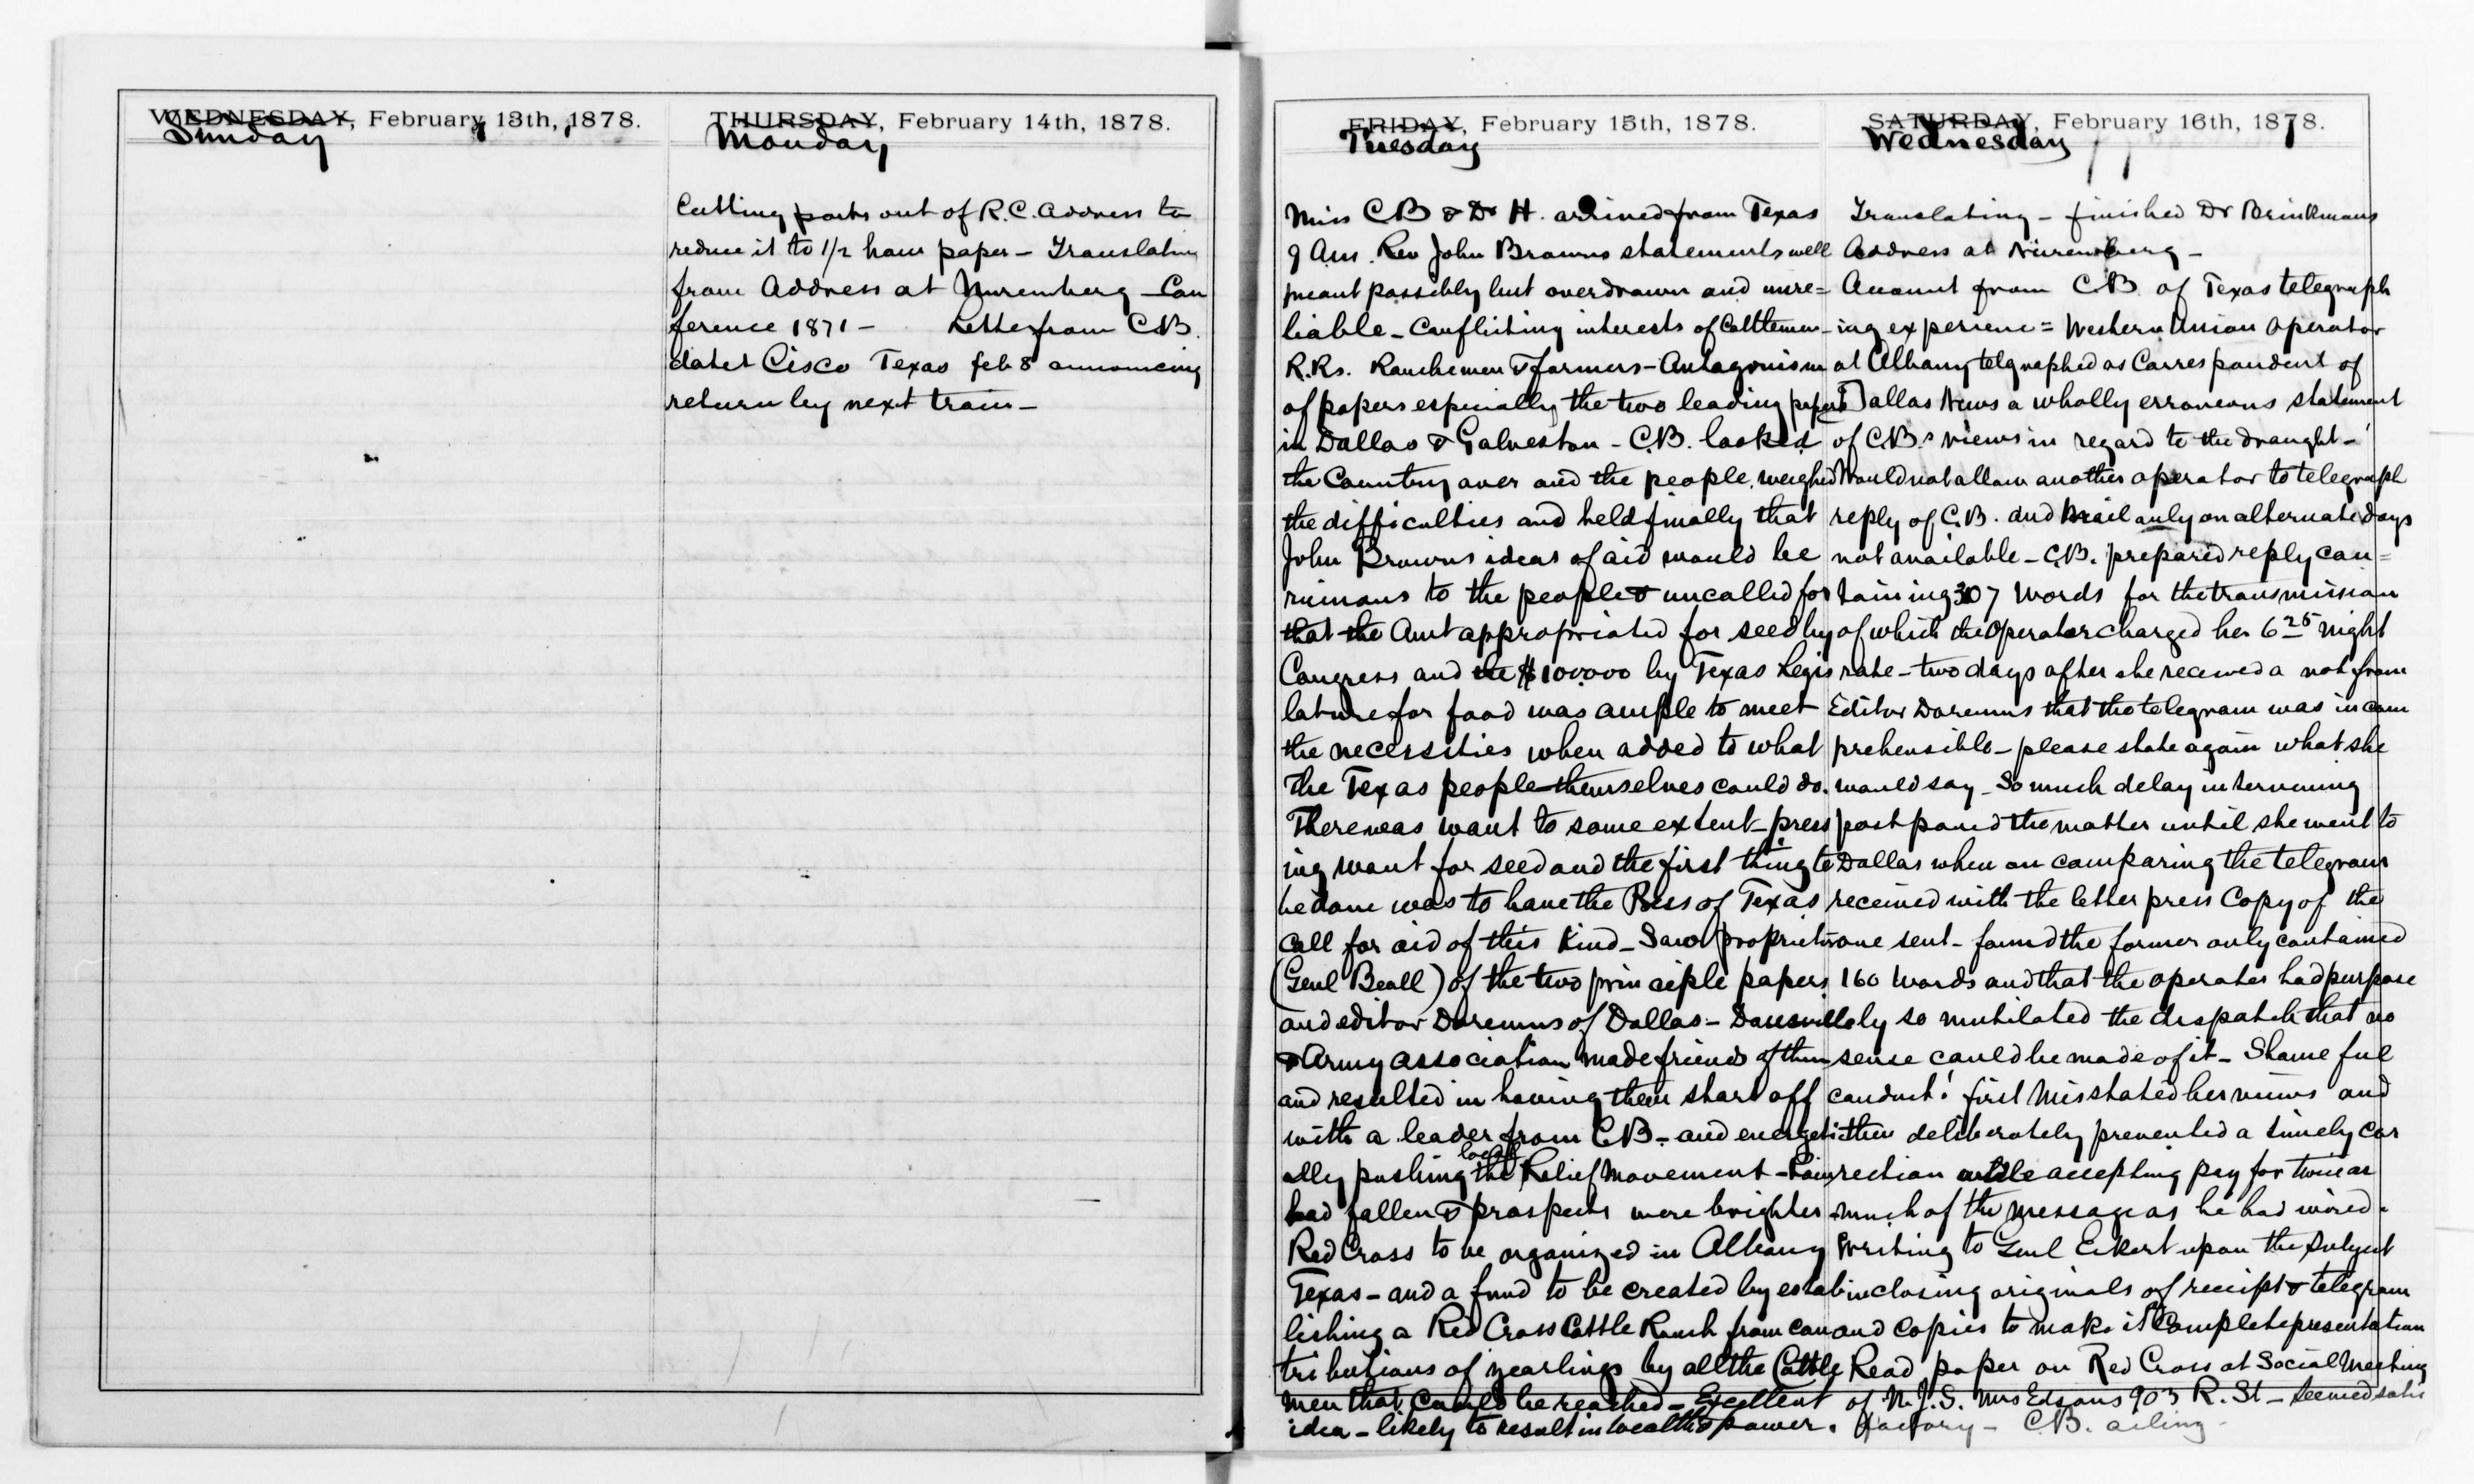 WEDNESDAY, February 13th, 1878.
Sunday
THURSDAY, February 14th, 1878.
Monday
Cutting parts out of R.C. Address to
reduce it to 1/2 hour paper - Translating
from Address at Nuremberg - Con
ference 1871 - Letter from CB.
dated Cisco Texas feb 8 announcing
return by next train -
FRIDAY, February 15th, 1878.
Tuesday
Miss CB & Dr H. arrived from Texas
9 Am. Rev John Browns statements well
meant possibly but overdrawn and unre=
liable - Conflicting interests of Cattlemen -
R.Rs. Ranchemen & farmers - Antagonism
of papers especially the two leading papers
in Dallas & Galveston - C.B. looked
the Country over and the people, weighed
the difficulties and held finally that
John Browns ideas of aid would be
ruinous to the people & uncalled for
that the Amt appropriated for seed by
Congress and the $100.000 by Texas Legis
lature for food was ample to meet
the necessities when added to what
the Texas people themselves could do.
There was want to some extent - press
ing want for seed and the first thing to
be done was to have the Press of Texas
call for aid of this kind - Saw proprietor
(Genl Beall) of the two principle papers
and editor Doremus of Dallas - Dansville
& Army association made friends of them
and resulted in having them start off
with a leader from C.B. - and energetic
ally pushing the local Relief Movement - Rain
had fallen & prospects were brighter
Red Cross to be organized in Albany
Texas - and a fund to be created by estab
lishing a Red Cross Cattle Ranch from con
tributions of yearlings by all the Cattle
men that could be reached - Excellent
idea - likely to result in wealth & power.
SATURDAY, February 16th, 1878.
Wednesday
Translating - finished Dr Brinkmans
Address at Nuremberg -
Account from C.B. of Texas telegraph
ing experience = Western Union Operator
at Albany telegraphed as Correspondent of
Dallas News a wholly erroneous statement
of C.B.s views in regard to the drought -
Would not allow another operator to telegraph
reply of C.B. and Mail only on alternate days
not available - C.B. prepared reply con=
taining 307 words for the transmission
of which the Operator charged her 6 25 night
rate - two days after she received a not from
Editor Doremus that the telegram was incom
prehensible - please state again what she
would say - So much delay intervening
postponed the matter until she went to
Dallas when on comparing the telegram
received with the letter press Copy of the
one sent - found the former only contained
160 words and that the operator had purpose
ly so mutilated the dispatch that no
sense could be made of it - Shameful
conduct! first Misstated her views and
then deliberately prevented a timely cor
rection while accepting pay for twice as
much of the message as he had wired.
Writing to Genl Eckert upon the subject
inclosing originals of receipt & telegram
and Copies to make it a Complete presentation
Read paper on Red Cross at Social Meeting
of N.J.S. Mrs Edsons 903 R. St - Seemed satis
factory - C.B. ailing -